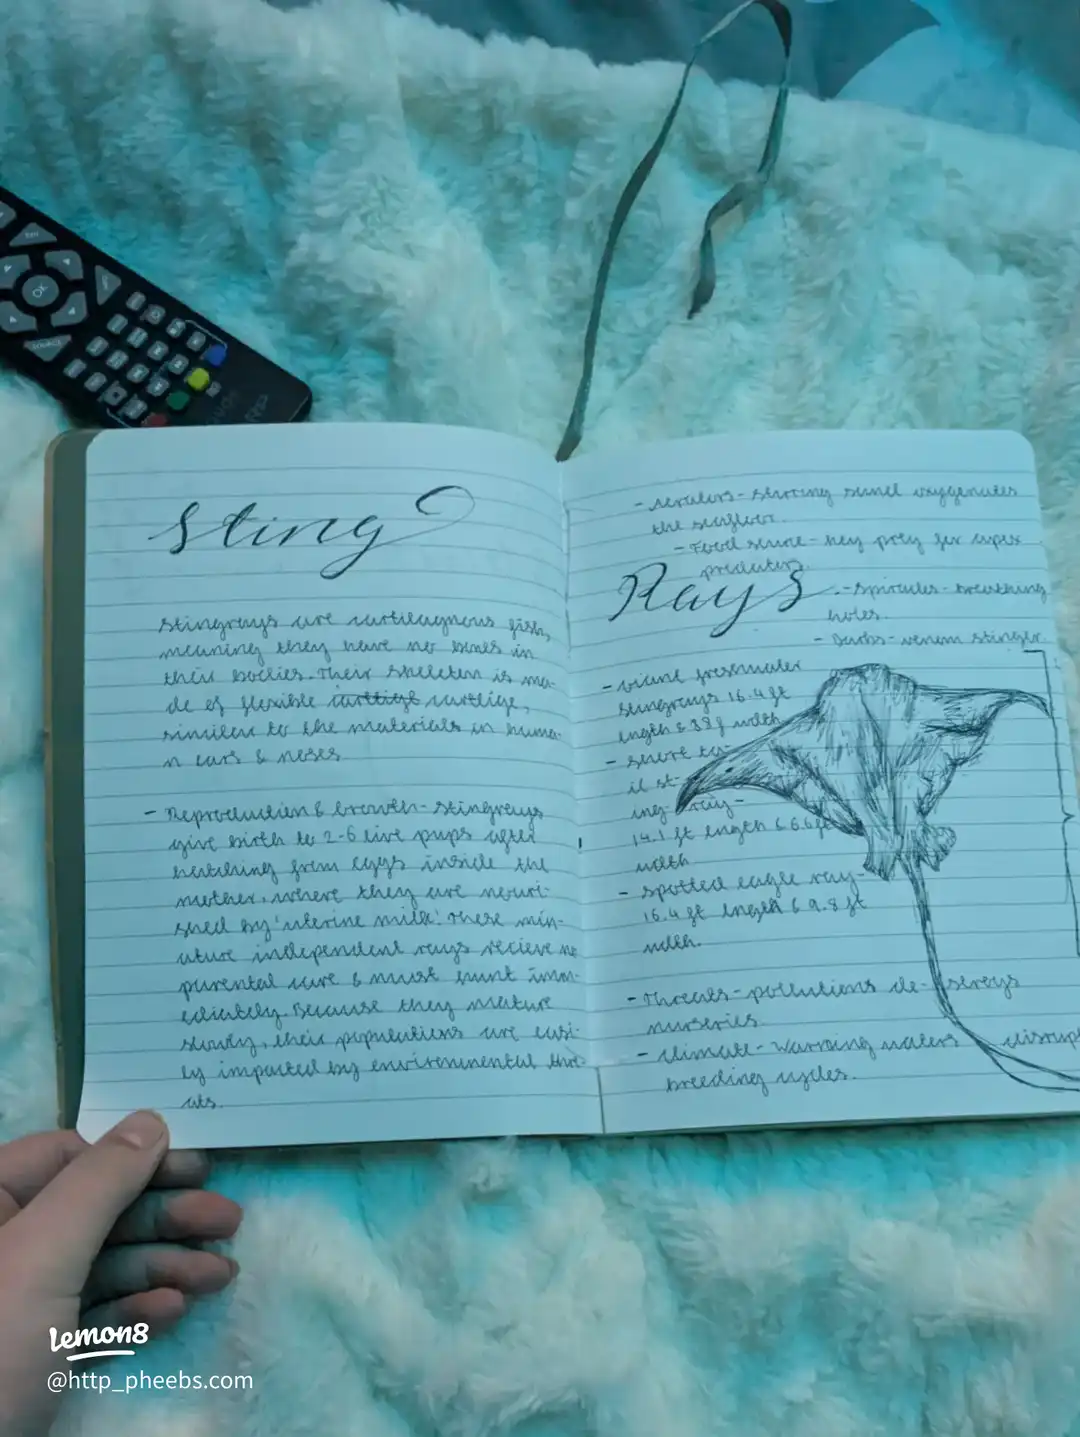 Sting
stingrays are cartileagnous fish,
meaning they have no bones in
their bodies. Their skeleton is ma-
de of flexible cartlige,
similar to the materials in huma-
n ears & noses
- Reproduction & Growth - stingrays
give birth to 2-6 live pups after
hatching from eggs inside the
mother, where they are nouri-
shed by 'uterine milk'. These min-
ature independent rays recieve no
parental care & must hunt imm-
ediately. Because they mature
slowly, their populations are easi-
ly impacted by environmental thre-
ats.
- Aerators - stirring sand oxygenates
the seafloor.
- Food - they prey for apex
predators.
Rays
- Spiracles - breathing
holes.
- Barbs - venom stinger
- Giant freshwater
stingrays 16.4 ft
length & width
- short ta-
il st-
ing-ray-
14.1 ft length & 6.6 ft
width
- spotted eagle ray-
16.4 ft length & 9.8 ft
width.
- Threats - pollutions de-stroys
nurseries.
- climate - warming waters disrup
breeding cycles.
OK
SOURCE
lemon8
@http_pheebs.com